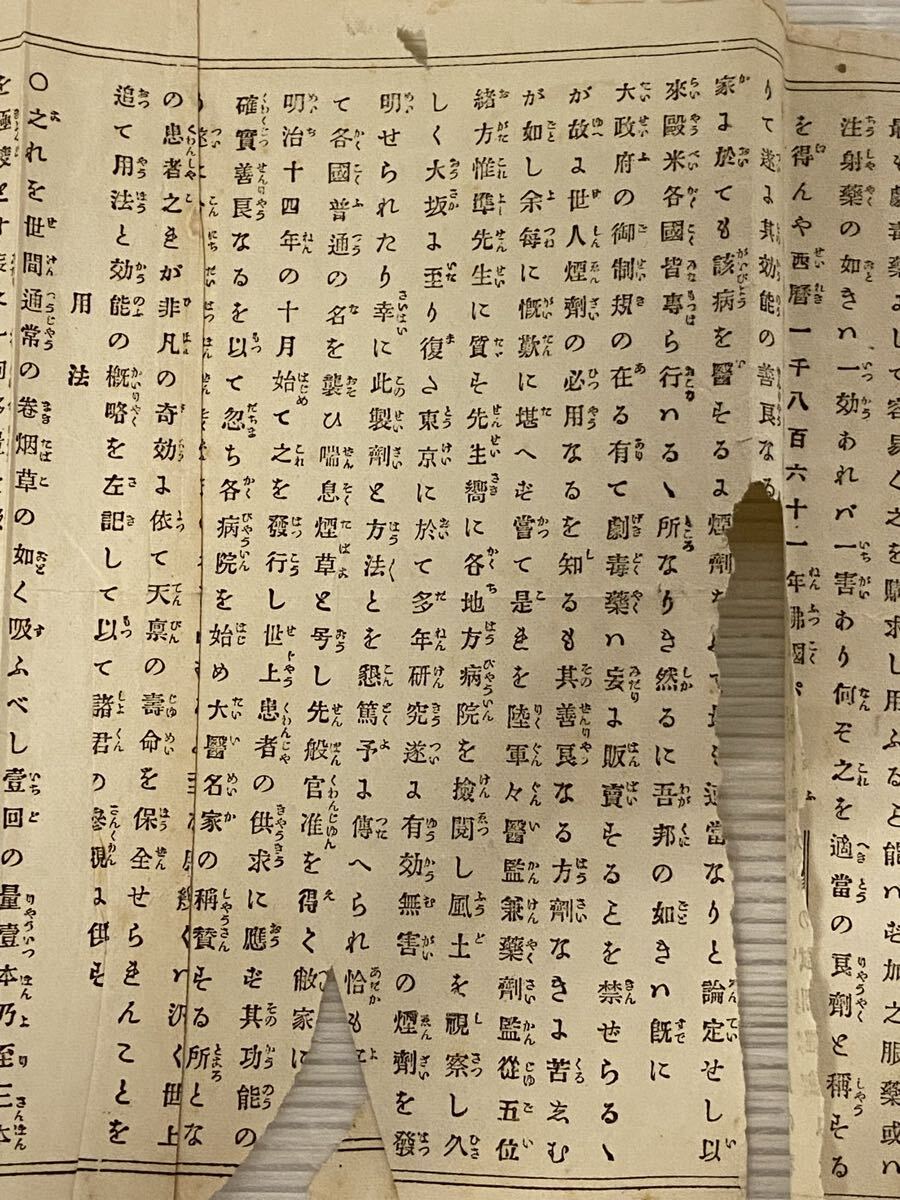 最も劇毒藥にして容易く之を購求し用ふると能はず加之服藥或は
注射藥の如きハ一効あれバ一害あり何ぞ之を適當の良劑と稱する
を得んや西曆一千八百六十一年佛國
りて遂よ其効能の善良なる
家よ於ても該病を醫するよ煙劑 適當なりと論定せし以
來毆米各國皆專ら行ハるゝ所なりき然るに吾邦の如きハ旣に
大政府の御制規の在る有て劇毒藥ハ妄よ販賣することを禁ぜらるゝ
が故よ世人煙劑の必用なるを知るも其善良なる方劑なきよ苦ゑむ
が如し余每に慨歎に堪へず嘗て是きを陸軍々醫監兼藥劑監從五位
緖方惟準先生に質す先生嚮に各地方病院を撿閱し風土を視察し久
しく大坂よ至り復た東京に於て多年硏究遂よ有効無害の煙劑を發
明せられたり幸に此製劑と方法とを懇篤予よ傳へられ恰も
て各國普通の名を襲ひ喘息煙草と号し先般官准を得て敝家に
明治十四年の十月始て之を發行し世上患者の供求に應ず其功能の
確實善良なるを以て忽ち各病院を始め大醫名家の稱賛する所とな
の患者之きが非凡の奇効よ依て天禀の壽命を保全せらきんことを
追て用法と効能の槪略を左記して以て諸君の參視よ供す
用法
〇之れを世間通常の卷烟草の如く吸ふべし壹回の量壹本乃至三本